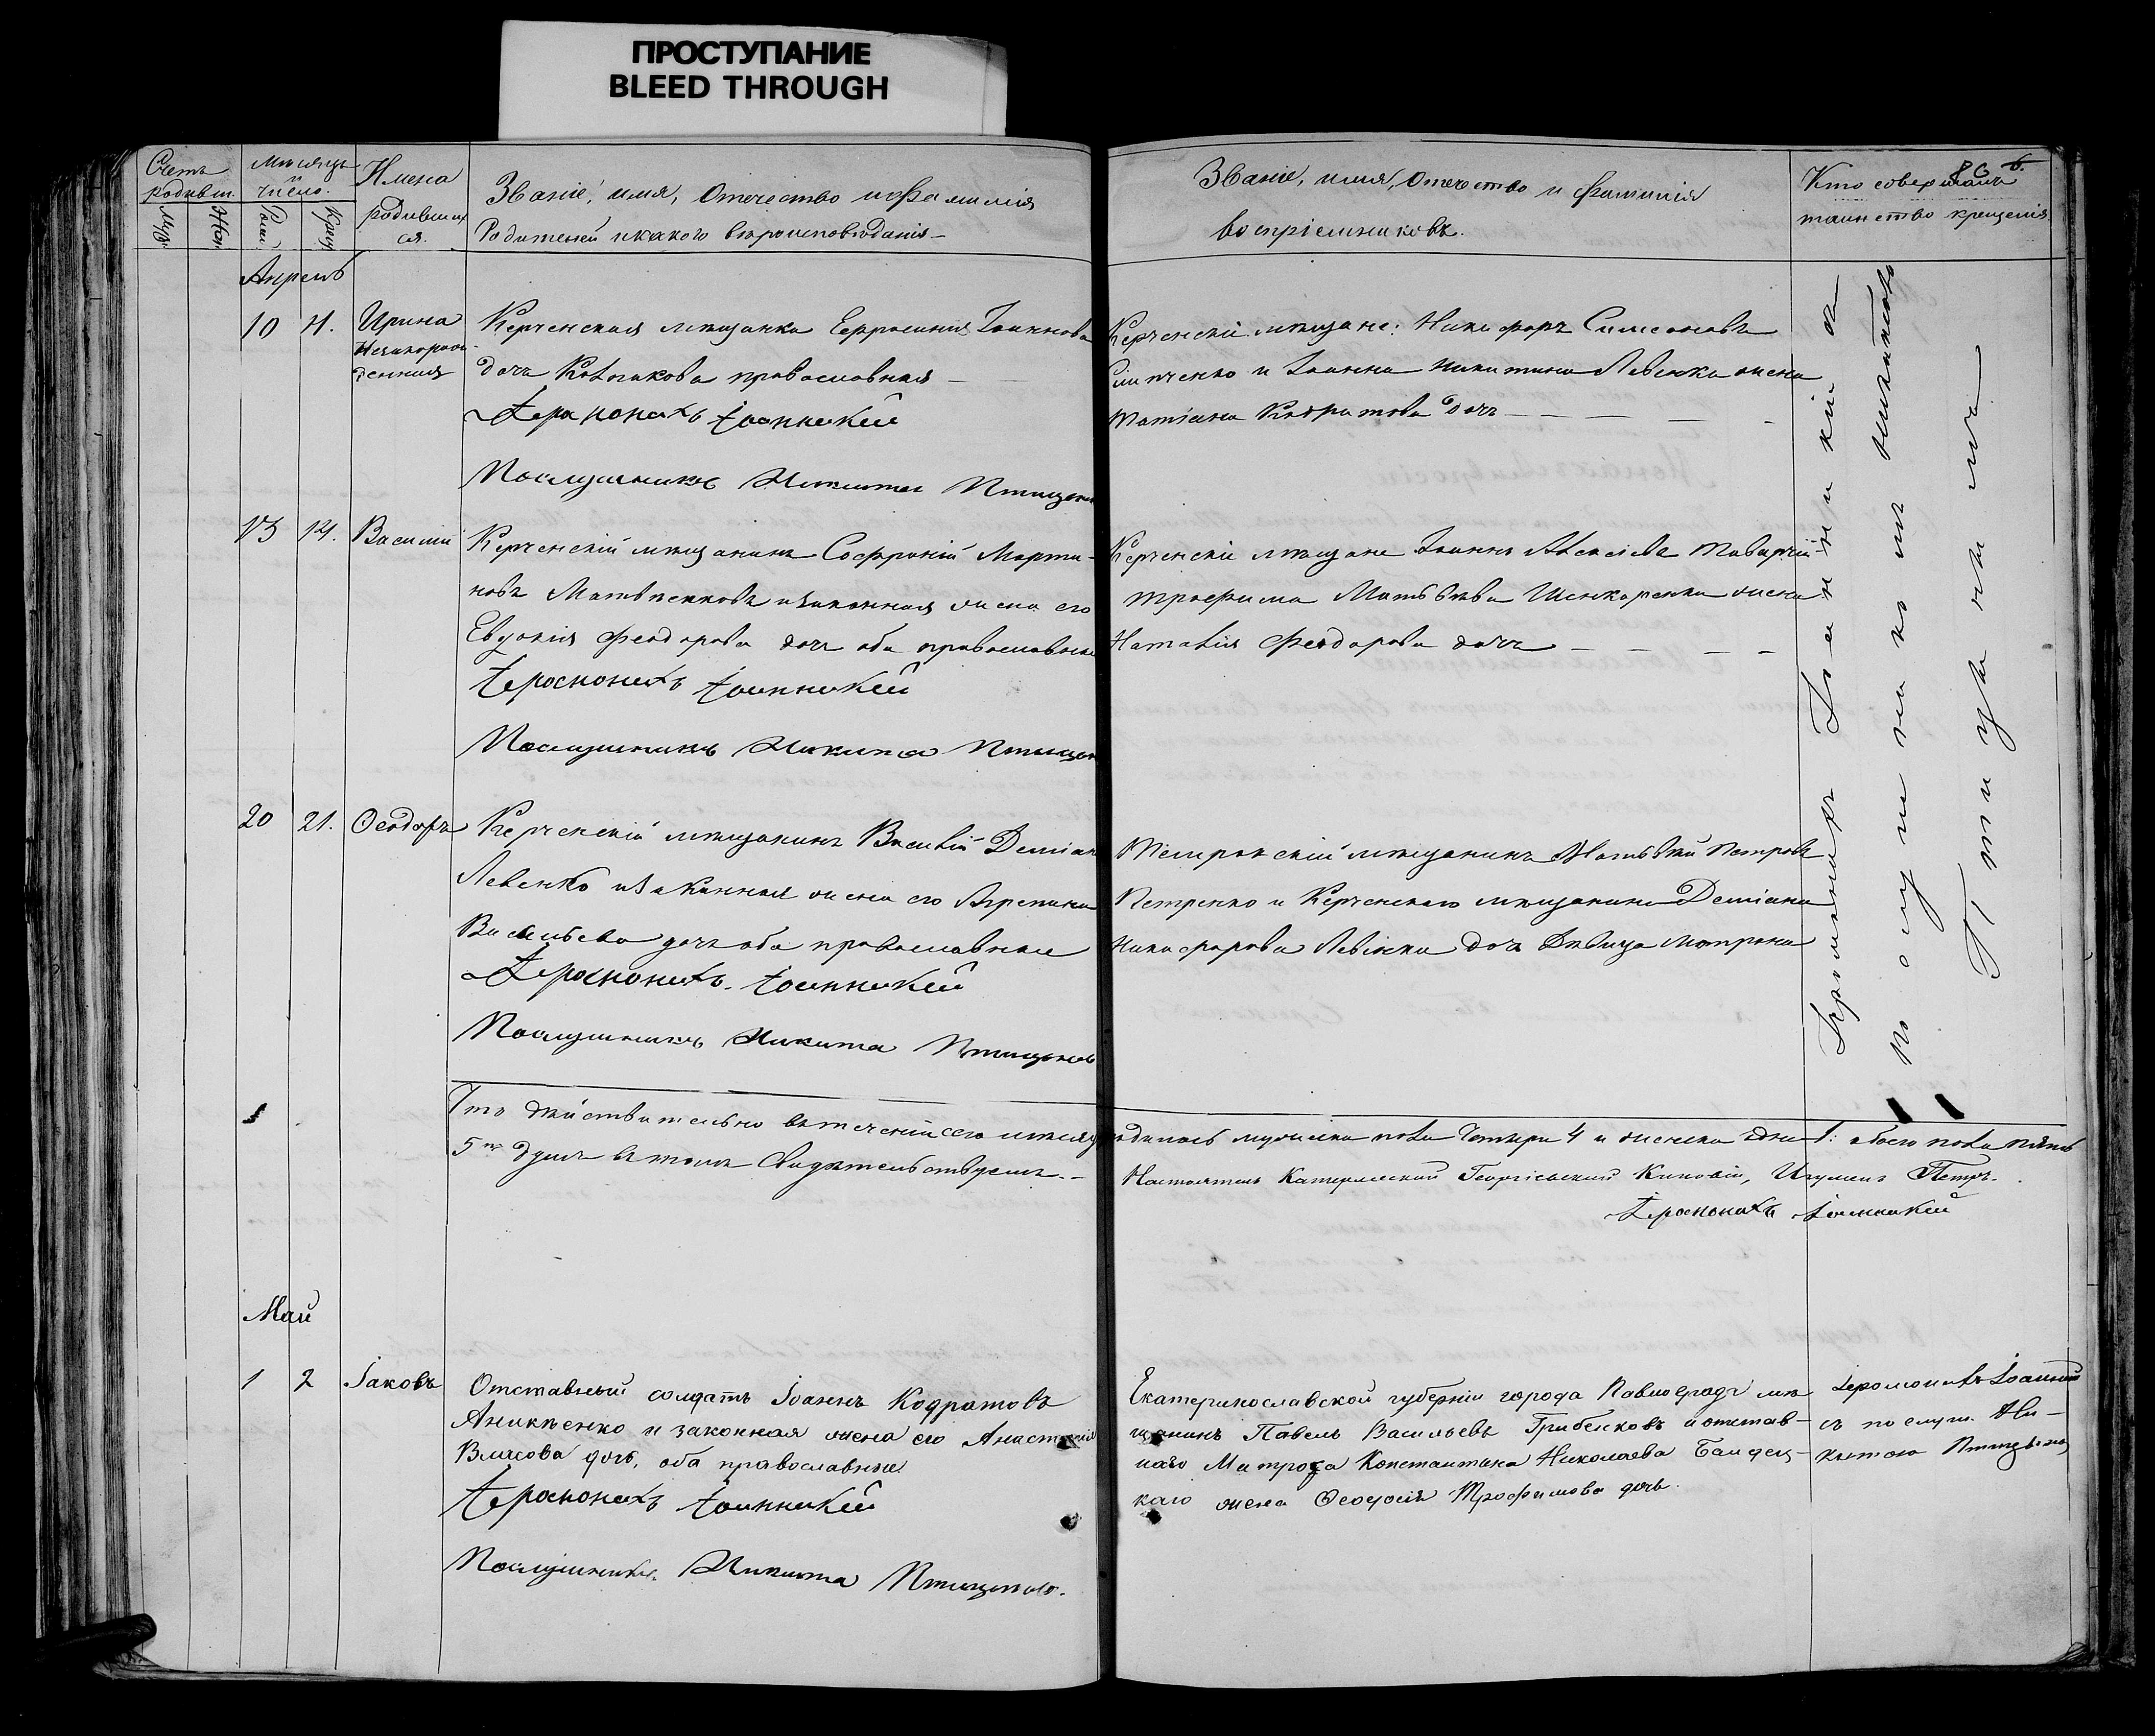 ПРОСТУПАНИЕ
BLEED THROUGH
Счетъ
родивш.
Муж.
Жен.
Мѣсяцъ
и
число.
Рож.
Крещ.
Имена
родивших
ся.
Званіе, имя, Отечество и фамилія
Родителей и какого вѣроисповѣданія
Званіе, имя, Отечество и фамилія
воспріемниковъ.
Кто совершалъ
таинство крещенія
Апрель
10
11.
Ирина
Незакорож-
денная
Керченская мѣщанка Евфросинія Іоаннова
дочь православная
Іеромонахъ Іоанникій
Послушникъ Никита Птицынъ
Керченскіе мѣщане: Никифоръ Симеоновъ
и Іоанна Никитина Левенка жена
Татіана Кодратова дочь
13
14.
Василій
Керченскій мѣщанинъ Софроній Марти-
новъ и законная жена его
Евдокія Феодорова дочь оба православные
Іеромонахъ Іоанникій
Послушникъ Никита Птицын
Керченскіе мѣщане Іоаннъ Алексіевъ
Трофима Матвѣева жена
Наталія Феодорова дочь
20
21.
Ѳеодоръ
Керченскій мѣщанинъ Василій Деміан
Левенко и законная жена его Агрепина
Васильева дочь оба православные
Іеромонахъ Іоанникій
Послушникъ Никита Птицынъ
мѣщанинъ Матвѣй Петровъ
Петренко и Керченскаго мѣщанина Деміана
Никифорова Левенка дочь дѣвица Матрона
Іеромонахъ Іоанникій съ
послушникомъ Никитою
Птицынымъ
Что дѣйствительно въ теченіи сего мѣсяца родилось мужеска пола Четыри 4 и женска одна 1: обоего пола пять
5 душъ въ томъ Свидѣтельствуемъ.
Настоятель Катерлесской Георгіевской Киновіи, Игуменъ Петръ.
Іеромонахъ Іоанникій
Май
1
2
Іаковъ
Отставный солдатъ Іоаннъ Кодратовъ
Аникѣенко и законная жена его Анастасія
Власова дочь, оба православные.
Іеромонахъ Іоанникій
Послушникъ Никита Птицынъ.
Екатеринославской губерніи города Павлоградъ мѣ
щанинъ Павелъ Васильевъ Грибенковъ и отстав-
наго Матроса Константина Николаева
каго жена Ѳеодосія Трофимова дочь.
Іеромонахъ Іоанникій
съ послуш. Ни-
китою Птицынымъ